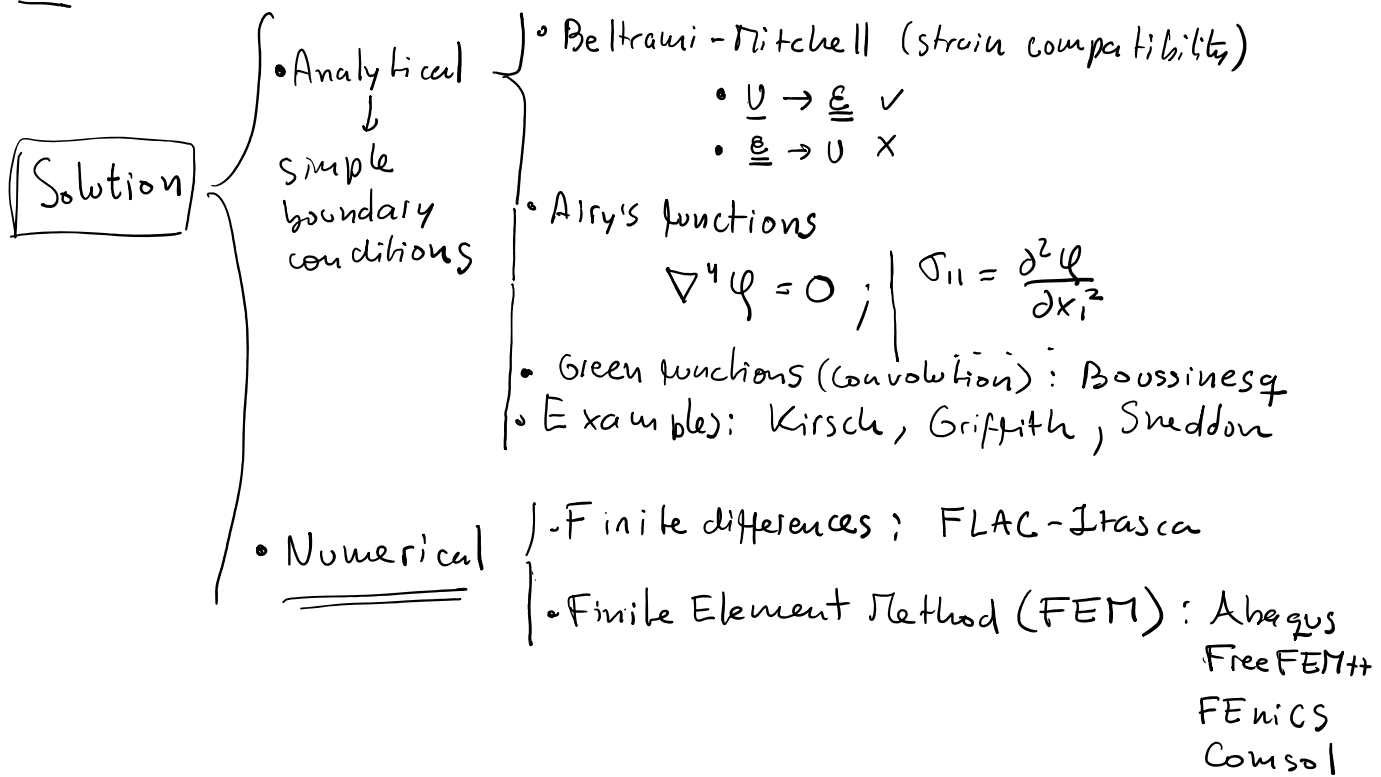 Solution
• Analytical
↓
simple
boundary
conditions
• Beltrami-Mitchell (strain compatibility)
• U → ε ✓
• ε → U ✗
• Airy's functions
∇⁴φ = 0 ; | σ₁₁ = ∂²φ / ∂x₁²
• Green functions (convolution) : Boussinesq
• Examples: Kirsch, Griffith, Sneddon
• Numerical
- Finite differences : FLAC-Itasca
• Finite Element Method (FEM) : Abaqus
FreeFEM++
FEniCS
Comsol